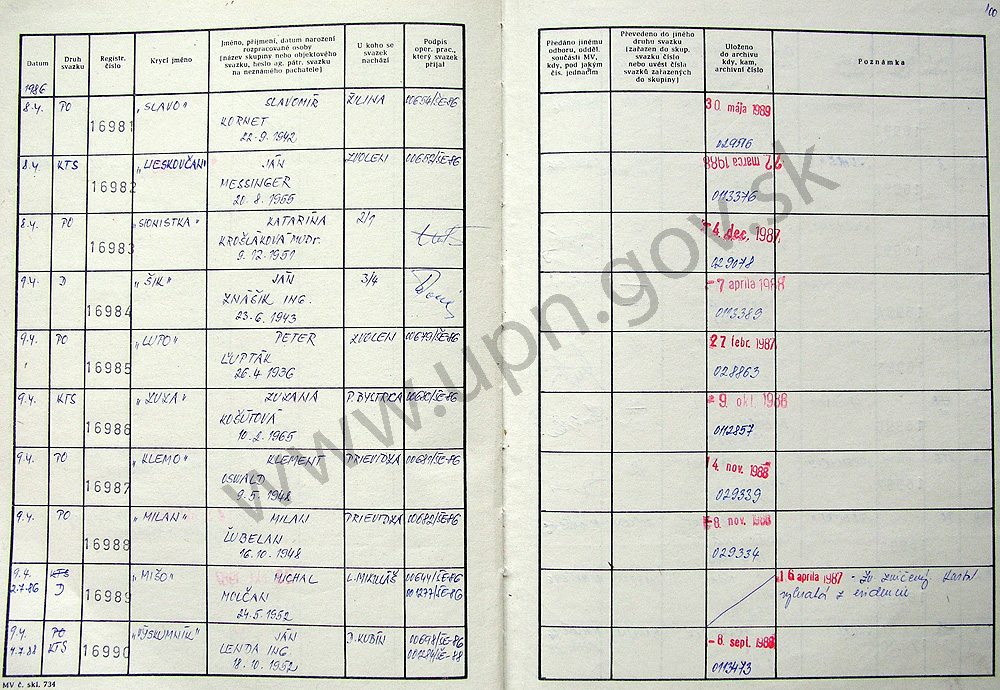 100
Datum
Druh svazku
Registr. číslo
Krycí jméno
Jméno, příjmení, datum narození
rozpracované osoby
(název skupiny nebo objektového
svazku, heslo ag. pátr. svazku
na neznámého pachatele)
U koho se
svazek
nachází
Podpis
oper. prac.,
který svazek
přijal
Předáno jinému
odboru, odděl.
součásti MV,
kdy, pod jakým
čís. jednacím
Převedeno do jiného
druhu svazku
(zařazen do skup.
svazku číslo
nebo uvést čísla
svazků zařazených
do skupiny)
Uloženo
do archivu
kdy, kam,
archivní číslo
Poznámka
1986
8.4. PO 16981 "SLAVO" SLAVOMÍR ŽILINA 30. mája 1989
KORNET
22-9.1942
8.4. KTS 16982 JÁN ZVOLEN 22. marca 1988
MESSINGER 0113376
20.8.1955
8.4. PO 16983 "SIONISTKA" KATARÍNA 2/1 -4. dec. 1987
KROŠLÁKOVÁ MUDr. 029078
9.12.1951
9.4. D 16984 "ŠÍK" JÁN 3/4 -7 apríla 1988
ZNÁŠIK ING. 0113389
23.6.1943
9.4. PO 16985 "LUPO" PETER ZVOLEN 00679/ŠE-86 27 febr. 1987
ĽUPTÁK 028863
26.4.1936
9.4. KTS 16986 "ZUZA" ZUZANA P. BYSTRICA 00680/ŠE-86 -9. okt. 1988
KOŠÚTOVÁ 0112857
10.2.1965
9.4. PO 16987 "KLEMO" KLEMENT PRIEVIDZA 00681/ŠE-86 14. nov. 1988
OSWALD 029339
9.5.1948
9.4. PO 16988 "MILAN" MILAN PRIEVIDZA 00682/ŠE-86 -8. nov. 1988
ĽUBELAN 029334
16.10.1948
9.4. KTS 16989 "MIŠO" MICHAL L. MIKULÁŠ 00644/ŠE-86 16 apríla 1987
2.7.86 D MOLČAN 001277/ŠE-86 z evidencie
24.5.1952
9.4. PO 16990 "VÝSKUMNÍK" JÁN D. KUBÍN 00698/ŠE-86 -8. sept. 1988
4.7.88 KTS LENDA ING 001284/ŠE-88 0113473
18.10.1952
MV č. skl. 734
www.upn.gov.sk